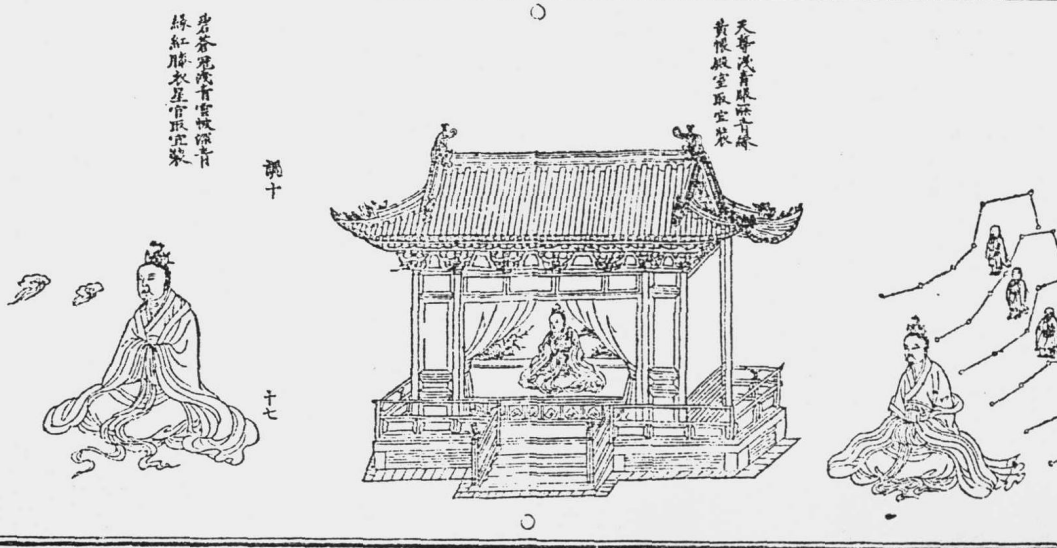 天尊淺青服深青緣
黃帳殿室取宜裝
調十
十七
碧蒼冠淺青宮帔深青
緣紅勝衣星官取宜裝